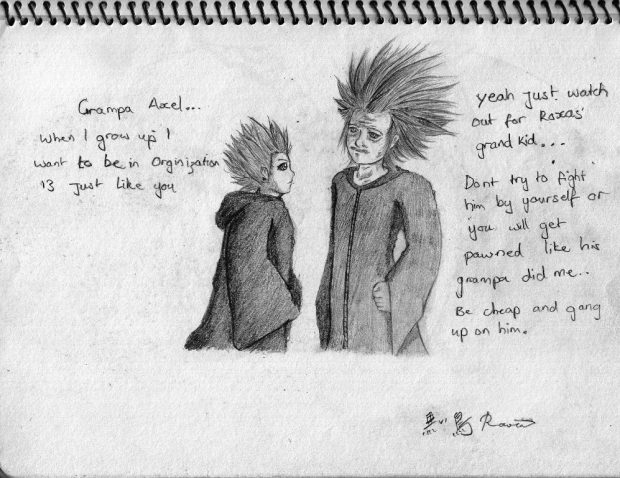 Grampa Axel...
When I grow up I
want to be in Orginization
13 Just like you
yeah just watch
out for Roxas'
grand kid...
Dont try to fight
him by yourself or
you will get
pawned like his
grampa did me..
Be cheap and gang
up on him.
黒い鳥 Raven